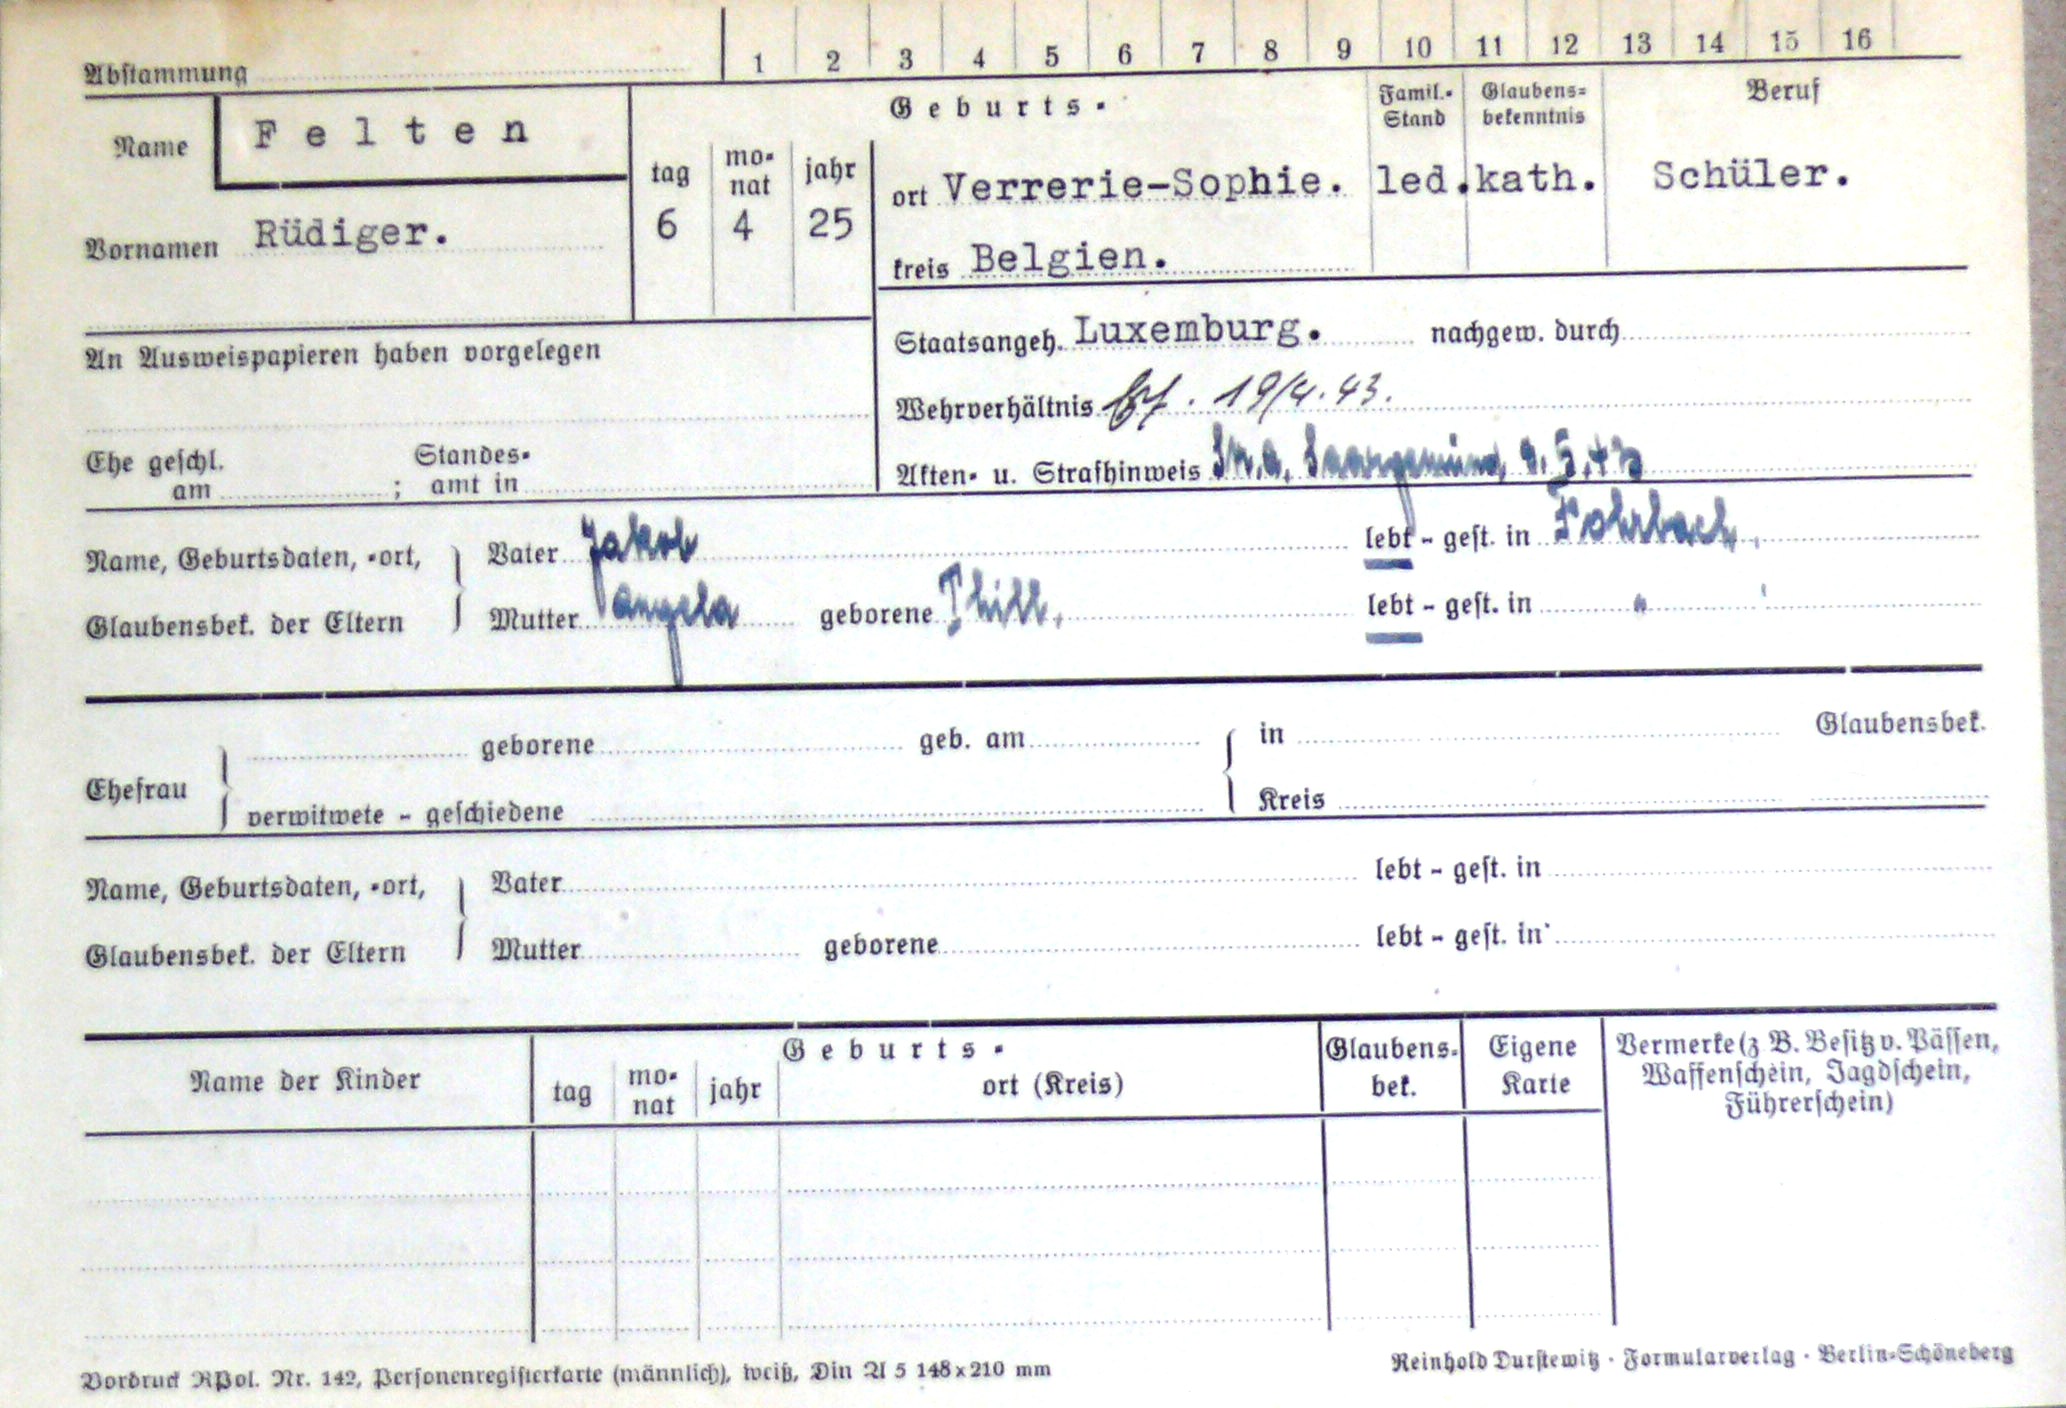 Abstammung
1 2 3 4 5 6 7 8 9 10 11 12 13 14 15 16
Name Felten
Vornamen Rüdiger.
Geburts-
tag monat jahr
6 4 25
ort Verrerie-Sophie.
kreis Belgien.
Famil.-Stand
led.
Glaubens-bekenntnis
kath.
Beruf
Schüler.
An Ausweispapieren haben vorgelegen
Staatsangeh. Luxemburg. nachgew. durch
Wehrverhältnis 19/4.43.
Ehe geschl. am ; Standes-amt in
Akten- u. Strafhinweis Saargemünd 9.5.43
Name, Geburtsdaten, -ort, Glaubensbek. der Eltern
Vater Jakob lebt - gest. in
Mutter Angela geborene Thill. lebt - gest. in "
Ehefrau
geborene geb. am in Glaubensbek.
verwitwete - geschiedene Kreis
Name, Geburtsdaten, -ort, Glaubensbek. der Eltern
Vater lebt - gest. in
Mutter geborene lebt - gest. in
Name der Kinder
Geburts-
tag monat jahr ort (Kreis)
Glaubens-bek.
Eigene Karte
Vermerke (z B. Besitz v. Pässen,
Waffenschein, Jagdschein,
Führerschein)
Vordruck RPol. Nr. 142, Personenregisterkarte (männlich), weiß, Din A 5 148x210 mm
Reinhold Durstewitz · Formularverlag · Berlin-Schöneberg